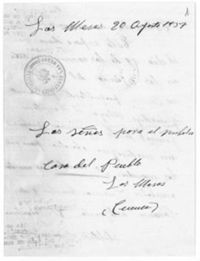 Las Mesas 20 Agosto 1937
Las señas para el
Casa del Pueblo
Las Mesas
(Cuenca)